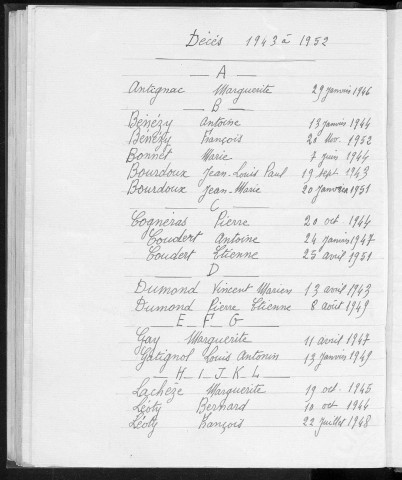 Décés 1943 à 1952
A
Antignac Marguerite 29 janvier 1946
B
Bénézy Antoine 13 janvier 1944
Bénézy François 20 Nov. 1952
Bonnet Marie 7 juin 1944
Bourdoux Jean-Louis Paul 19 sept 1943
Bourdoux Jean-Marie 20 janvier 1951
C
Cognéras Pierre 20 oct 1944
Coudert Antoine 24 janvier 1947
Coudert Etienne 25 avril 1951
D
Dumond Vincent Marien 13 avril 1943
Dumond Pierre Etienne 8 août 1949
E - F - G
Gay Marguerite 11 avril 1947
Gatignol Louis Antonin 13 janvier 1949
H - I - J K L
Lachèze Marguerite 19 oct. 1945
Léoty Bernard 10 oct 1944
Léoty François 22 juillet 1948